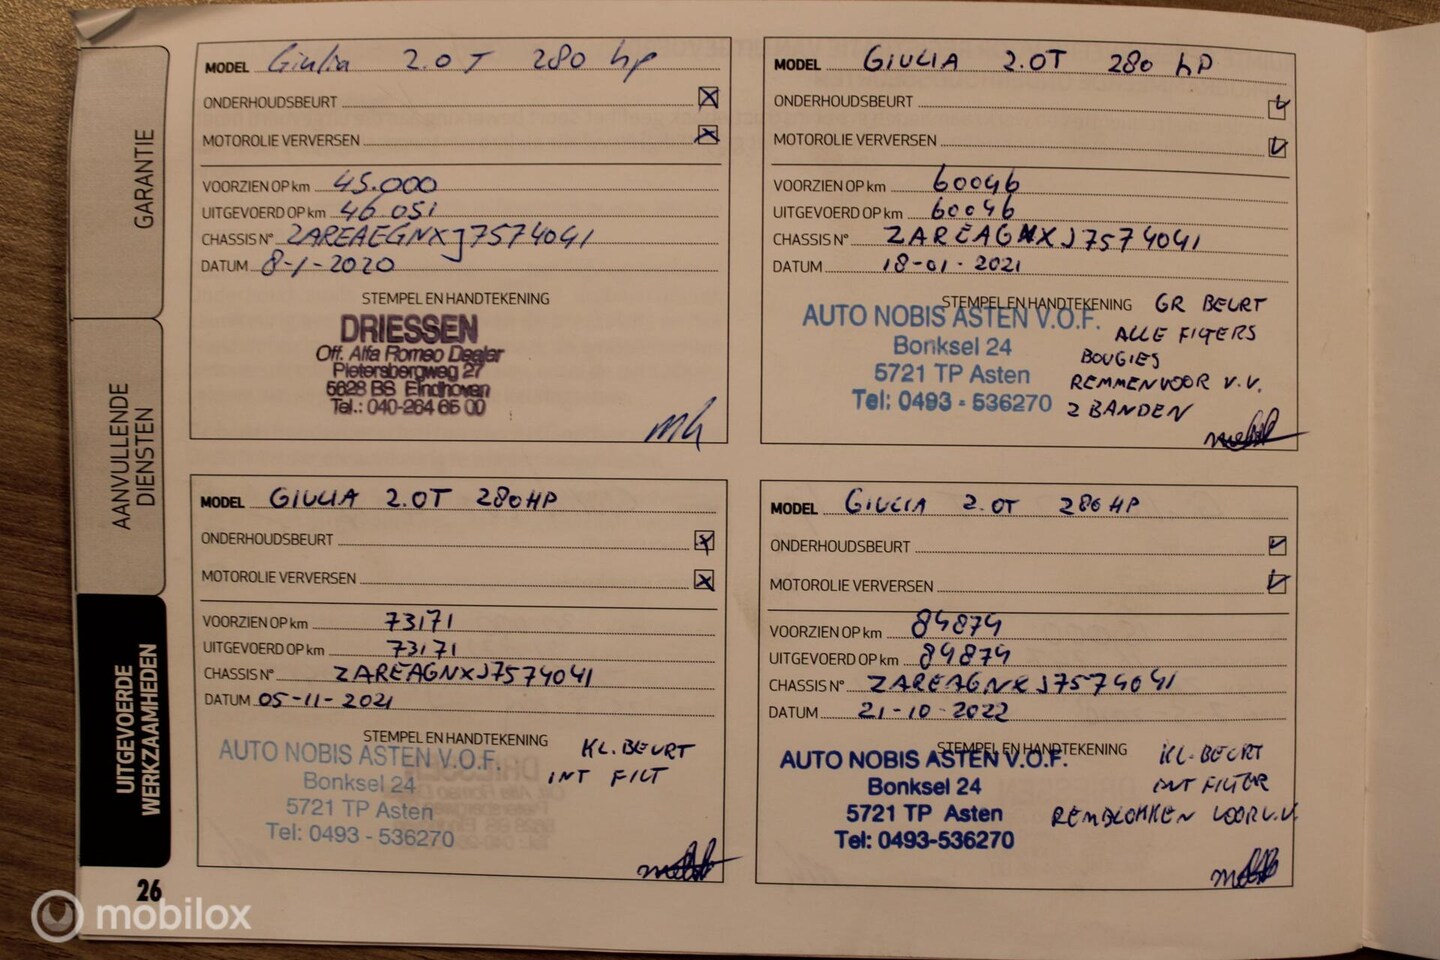 GARANTIE
AANVULLENDE
DIENSTEN
UITGEVOERDE
WERKZAAMHEDEN
26
MODEL Giulia 2.0 T 280 hp
ONDERHOUDSBEURT
MOTOROLIE VERVERSEN
VOORZIEN OP km 45.000
UITGEVOERD OP km 46 051
CHASSIS N° ZAREAEGNXJ7574041
DATUM 8-1-2020
STEMPEL EN HANDTEKENING
DRIESSEN
Off. Alfa Romeo Dealer
Pietersbergweg 27
5628 BS Eindhoven
Tel.: 040-264 65 00
MODEL GIULIA 2.0T 280 hP
ONDERHOUDSBEURT
MOTOROLIE VERVERSEN
VOORZIEN OP km 60046
UITGEVOERD OP km 60046
CHASSIS N° ZAREAGNXJ7574041
DATUM 18-01-2021
STEMPEL EN HANDTEKENING
AUTO NOBIS ASTEN V.O.F.
Bonksel 24
5721 TP Asten
Tel: 0493 - 536270
GR BEURT
ALLE FILTERS
BOUGIES
REMMENVOOR V.V.
2 BANDEN
MODEL GIULIA 2.0T 280HP
ONDERHOUDSBEURT
MOTOROLIE VERVERSEN
VOORZIEN OP km 73171
UITGEVOERD OP km 73171
CHASSIS N° ZAREAGNXJ7574041
DATUM 05-11-2021
STEMPEL EN HANDTEKENING
AUTO NOBIS ASTEN V.O.F.
Bonksel 24
5721 TP Asten
Tel: 0493 - 536270
KL. BEURT
INT FILT
MODEL GIULIA 2.0T 280HP
ONDERHOUDSBEURT
MOTOROLIE VERVERSEN
VOORZIEN OP km 84874
UITGEVOERD OP km 84874
CHASSIS N° ZAREAGNXJ7574041
DATUM 21-10-2022
STEMPEL EN HANDTEKENING
AUTO NOBIS ASTEN V.O.F.
Bonksel 24
5721 TP Asten
Tel: 0493-536270
KL-BEURT
INT FILTER
REMBLOKKEN VOOR V.V.
mobilox